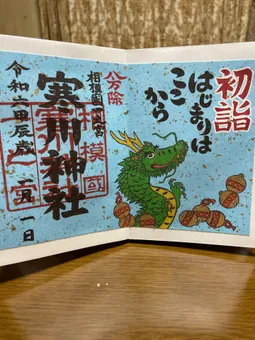 初詣
はじまりは
ここから
八方除
相模國一之宮
寒川神社
令和六甲辰歳一月一日